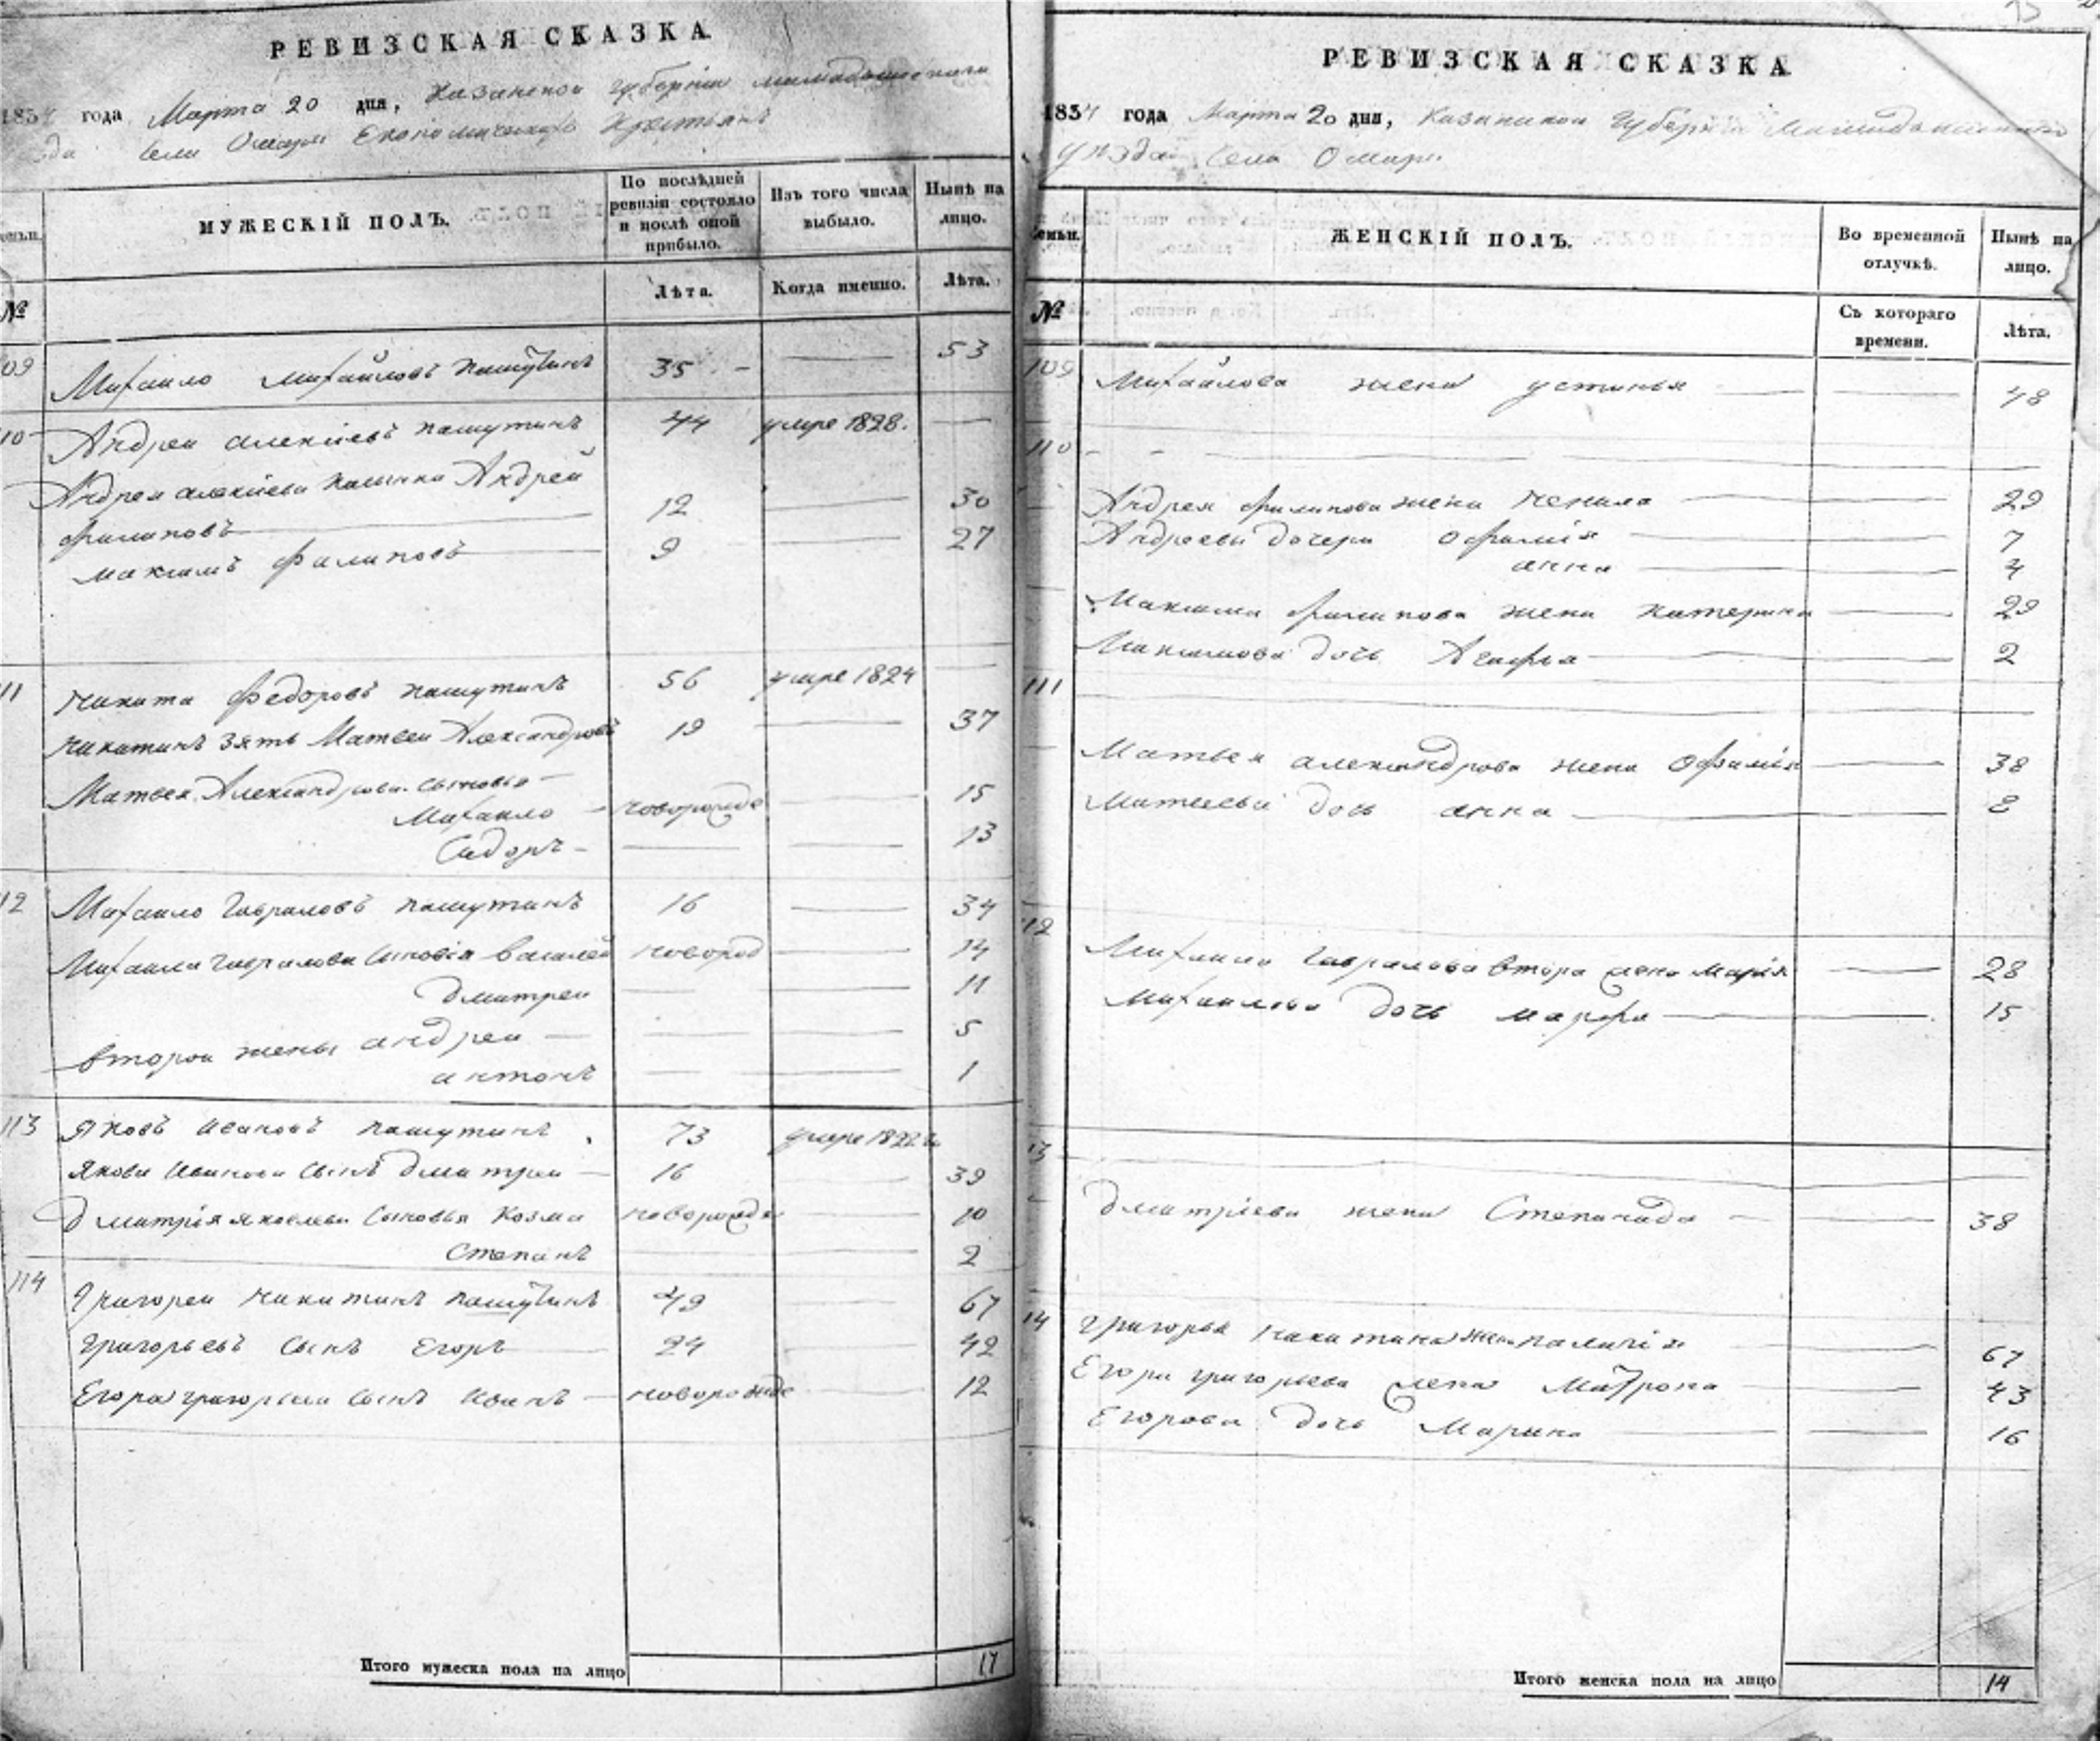 РЕВИЗСКАЯ СКАЗКА.
1834 года Марта 20 дня, Казанской Губернии
села Омары Економическихъ Крестьянъ
МУЖЕСКІЙ ПОЛЪ.
По послѣдней ревизіи состояло и послѣ оной прибыло.
Изъ того числа выбыло.
Нынѣ на лицо.
№
Лѣта.
Когда именно.
Лѣта.
109 Михаило Михайловъ пашутинъ 35 53
110 Андреи алексиевъ пашутинъ 44 умре 1828.
Андрея алексиева Андрей
филиповъ 12 30
максимъ филиповъ 9 27
111 никита федоровъ пашутинъ 56 умре 1824
никитинъ зять Матвеи Александровъ 19 37
Матвея Александрова сыновья
Михаило новорожде 15
Сидоръ 13
112 Михаило гавриловъ пашутинъ 16 34
Михаила гаврилова сыновья василей новород 14
дмитреи 11
второи жены андреи 5
антонъ 1
113 яковъ ивановъ пашутинъ 73 умре
якова иванова сынъ дмитреи 16 39
дмитрія яковлева сыновья козма новорожде 10
степанъ 2
114 григореи никитинъ пашутинъ 49 67
григорьевъ сынъ егоръ 24 42
Егора григорьева сынъ иванъ новорожде 12
Итого мужеска пола на лицо 17
РЕВИЗСКАЯ СКАЗКА
1834 года Марта 20 дня, Казанской Губерніи
уезда села Омары
Семьи.
ЖЕНСКІЙ ПОЛЪ.
Во временной отлучкѣ.
Нынѣ на лицо.
№
Съ котораго времени.
Лѣта.
109 Михайлова жена устинья 48
110
Андрея филипова жена ненила 29
Андреевы дочери офимія 7
анна 4
Максима филипова жена катерина 29
Максимова дочь Агафья 2
111
Матвея александрова жена офимья 38
Матвеева дочь анна 8
112
Михаила гаврилова втора жена марія 28
Михаилова дочь марфа 15
113
дмитріева жена Степанида 38
114 григорья никитина жена 67
Егора григорьева жена Матрона 43
Егорова дочь Марина 16
Итого женска пола на лицо 14